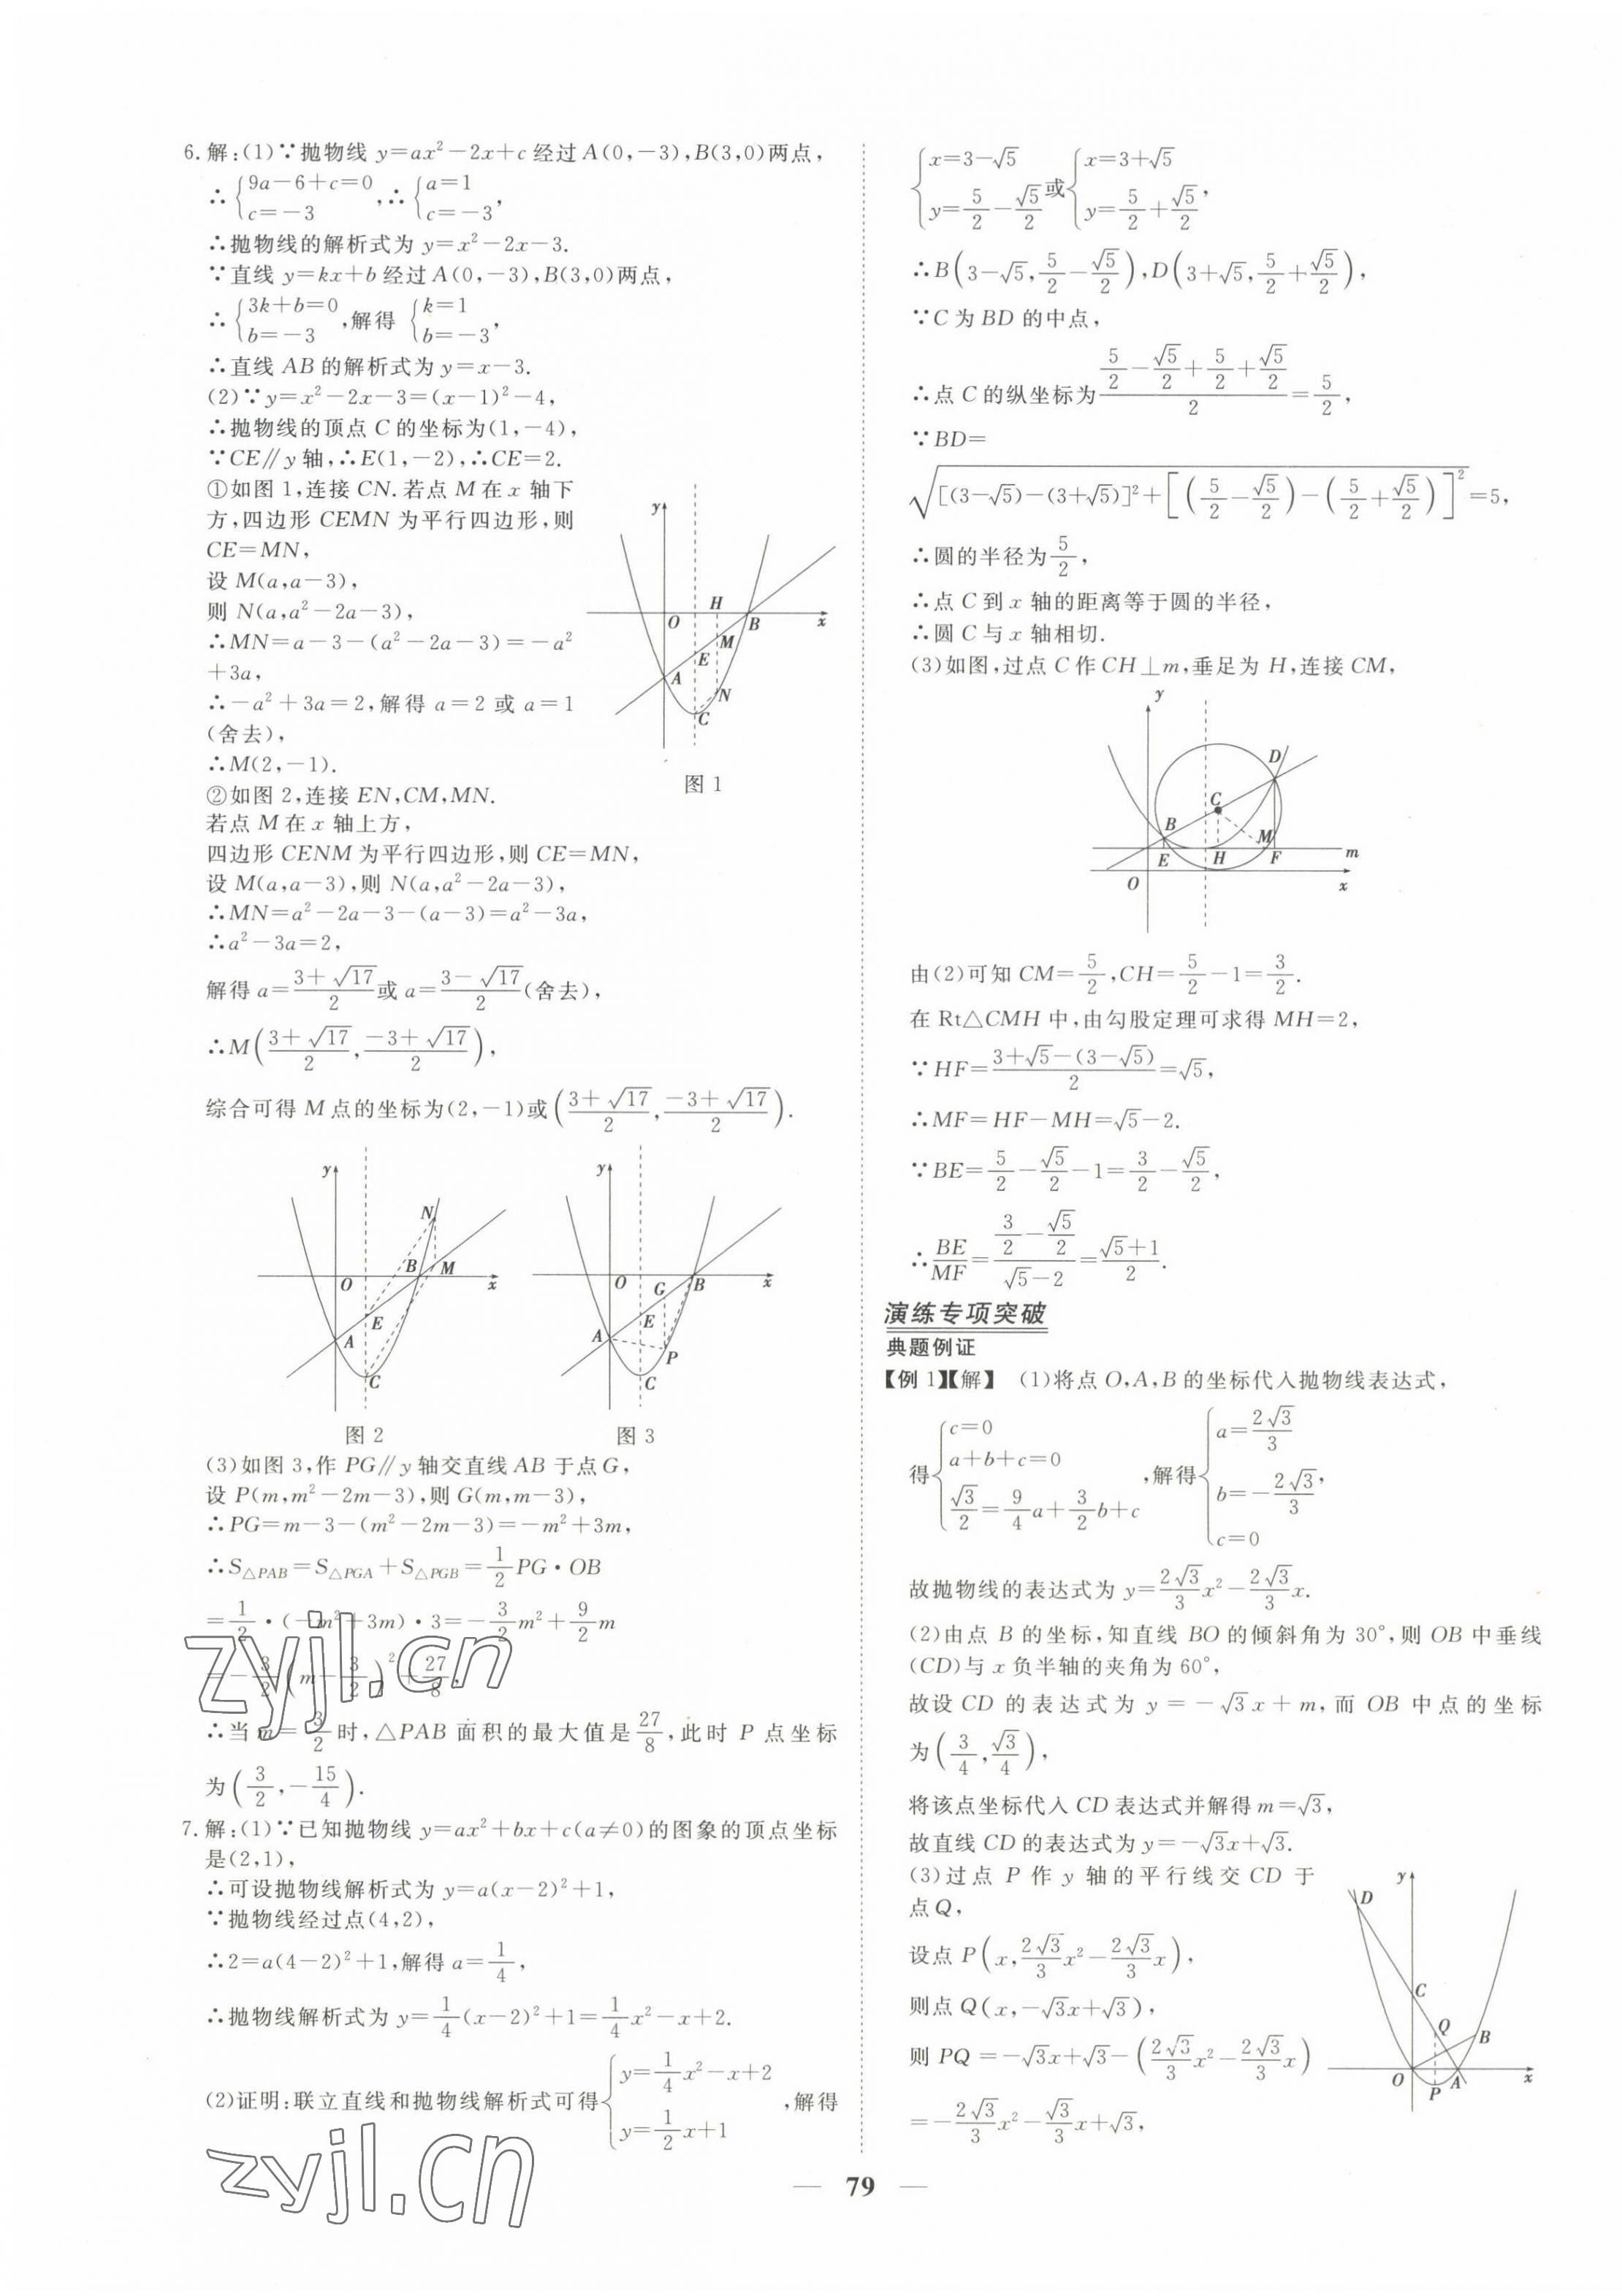 6.解:(1)∵抛物线 y=ax²-2x+c 经过 A(0,-3),B(3,0)两点,
∴{9a-6+c=0 c=-3,∴{a=1 c=-3,
∴抛物线的解析式为 y=x²-2x-3.
∵直线 y=kx+b 经过 A(0,-3),B(3,0)两点,
∴{3k+b=0 b=-3,解得 {k=1 b=-3,
∴直线 AB 的解析式为 y=x-3.
(2)∵y=x²-2x-3=(x-1)²-4,
∴抛物线的顶点 C 的坐标为(1,-4),
∵CE∥y 轴,∴E(1,-2),∴CE=2.
①如图 1,连接 CN.若点 M 在 x 轴下
方,四边形 CEMN 为平行四边形,则
CE=MN,
设 M(a,a-3),
则 N(a,a²-2a-3),
∴MN=a-3-(a²-2a-3)=-a²
+3a,
∴-a²+3a=2,解得 a=2 或 a=1
(舍去),
∴M(2,-1).
y
H
O
B
x
M
E
A
N
C
图 1
②如图 2,连接 EN,CM,MN.
若点 M 在 x 轴上方,
四边形 CENM 为平行四边形,则 CE=MN,
设 M(a,a-3),则 N(a,a²-2a-3),
∴MN=a²-2a-3-(a-3)=a²-3a,
∴a²-3a=2,
解得 a=(3+√17)/2或 a=(3-√17)/2(舍去),
∴M((3+√17)/2,(-3+√17)/2),
综合可得 M 点的坐标为(2,-1)或((3+√17)/2,(-3+√17)/2).
y
N
B
M
O
x
E
A
C
图 2
y
O
G
B
x
E
A
P
C
图 3
(3)如图 3,作 PG∥y 轴交直线 AB 于点 G,
设 P(m,m²-2m-3),则 G(m,m-3),
∴PG=m-3-(m²-2m-3)=-m²+3m,
∴S△PAB=S△PGA+S△PGB=1/2 PG·OB
=1/2·(-m²+3m)·3=-3/2 m²+9/2 m
=-3/2(m-3/2)²+27/8.
∴当 m=3/2时,△PAB 面积的最大值是27/8,此时 P 点坐标
为(3/2,-15/4).
7.解:(1)∵已知抛物线 y=ax²+bx+c(a≠0)的图象的顶点坐标
是(2,1),
∴可设抛物线解析式为 y=a(x-2)²+1,
∵抛物线经过点(4,2),
∴2=a(4-2)²+1,解得 a=1/4,
∴抛物线解析式为 y=1/4(x-2)²+1=1/4 x²-x+2.
(2)证明:联立直线和抛物线解析式可得{y=1/4 x²-x+2 y=1/2 x+1,解得
{x=3-√5 y=5/2-√5/2或{x=3+√5 y=5/2+√5/2,
∴B(3-√5,5/2-√5/2),D(3+√5,5/2+√5/2),
∵C 为 BD 的中点,
∴点 C 的纵坐标为(5/2-√5/2+5/2+√5/2)/2=5/2,
∵BD=
√([(3-√5)-(3+√5)]²+[(5/2-√5/2)-(5/2+√5/2)]²)=5,
∴圆的半径为5/2,
∴点 C 到 x 轴的距离等于圆的半径,
∴圆 C 与 x 轴相切.
(3)如图,过点 C 作 CH⊥m,垂足为 H,连接 CM,
y
D
C
B
M
m
E
H
F
O
x
由(2)可知 CM=5/2,CH=5/2-1=3/2.
在 Rt△CMH 中,由勾股定理可求得 MH=2,
∵HF=(3+√5-(3-√5))/2=√5,
∴MF=HF-MH=√5-2.
∵BE=5/2-√5/2-1=3/2-√5/2,
∴BE/MF=(3/2-√5/2)/(√5-2)=(√5+1)/2.
演练专项突破
典题例证
【例 1】【解】 (1)将点 O,A,B 的坐标代入抛物线表达式,
得{c=0 a+b+c=0 √3/2=9/4 a+3/2 b+c,解得{a=2√3/3 b=-2√3/3 c=0,
故抛物线的表达式为 y=2√3/3 x²-2√3/3 x.
(2)由点 B 的坐标,知直线 BO 的倾斜角为 30°,则 OB 中垂线
(CD)与 x 负半轴的夹角为 60°,
故设 CD 的表达式为 y=-√3x+m,而 OB 中点的坐标
为(3/4,√3/4),
将该点坐标代入 CD 表达式并解得 m=√3,
故直线 CD 的表达式为 y=-√3x+√3.
(3)过点 P 作 y 轴的平行线交 CD 于
点 Q,
设点 P(x,2√3/3 x²-2√3/3 x),
则点 Q(x,-√3x+√3),
则 PQ=-√3x+√3-(2√3/3 x²-2√3/3 x)
=-2√3/3 x²-√3/3 x+√3,
y
D
C
Q
B
O
P
A
x
zyjl.cn
zyjl.cn
79